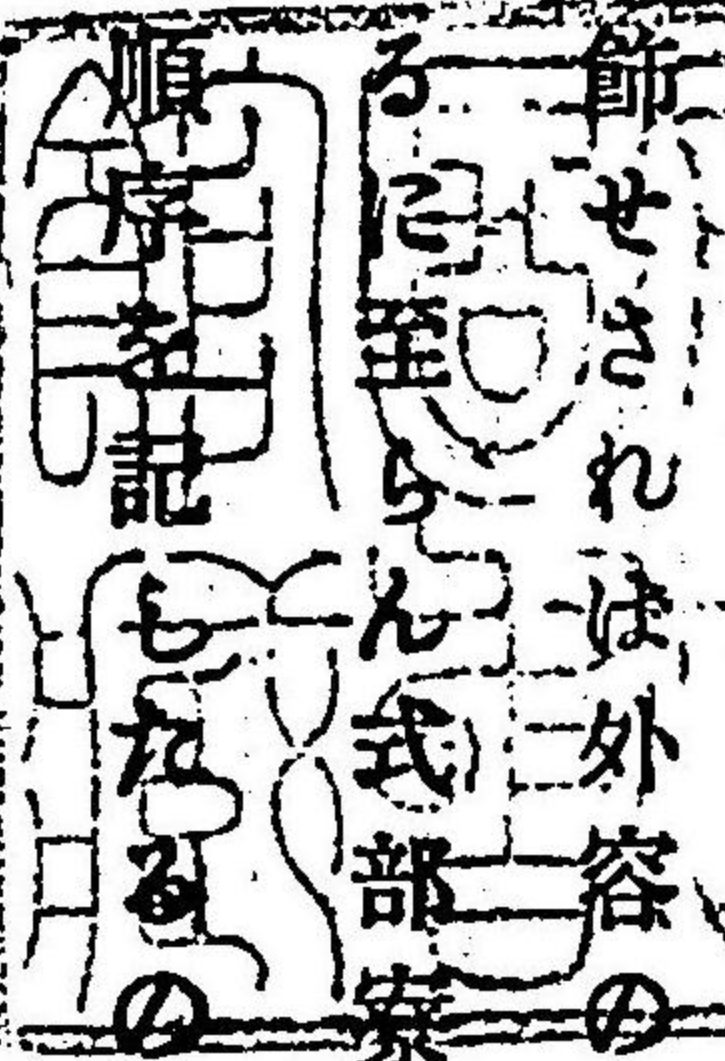 飾せされは外容の
るに至らん式部寮
順序を記もたるの